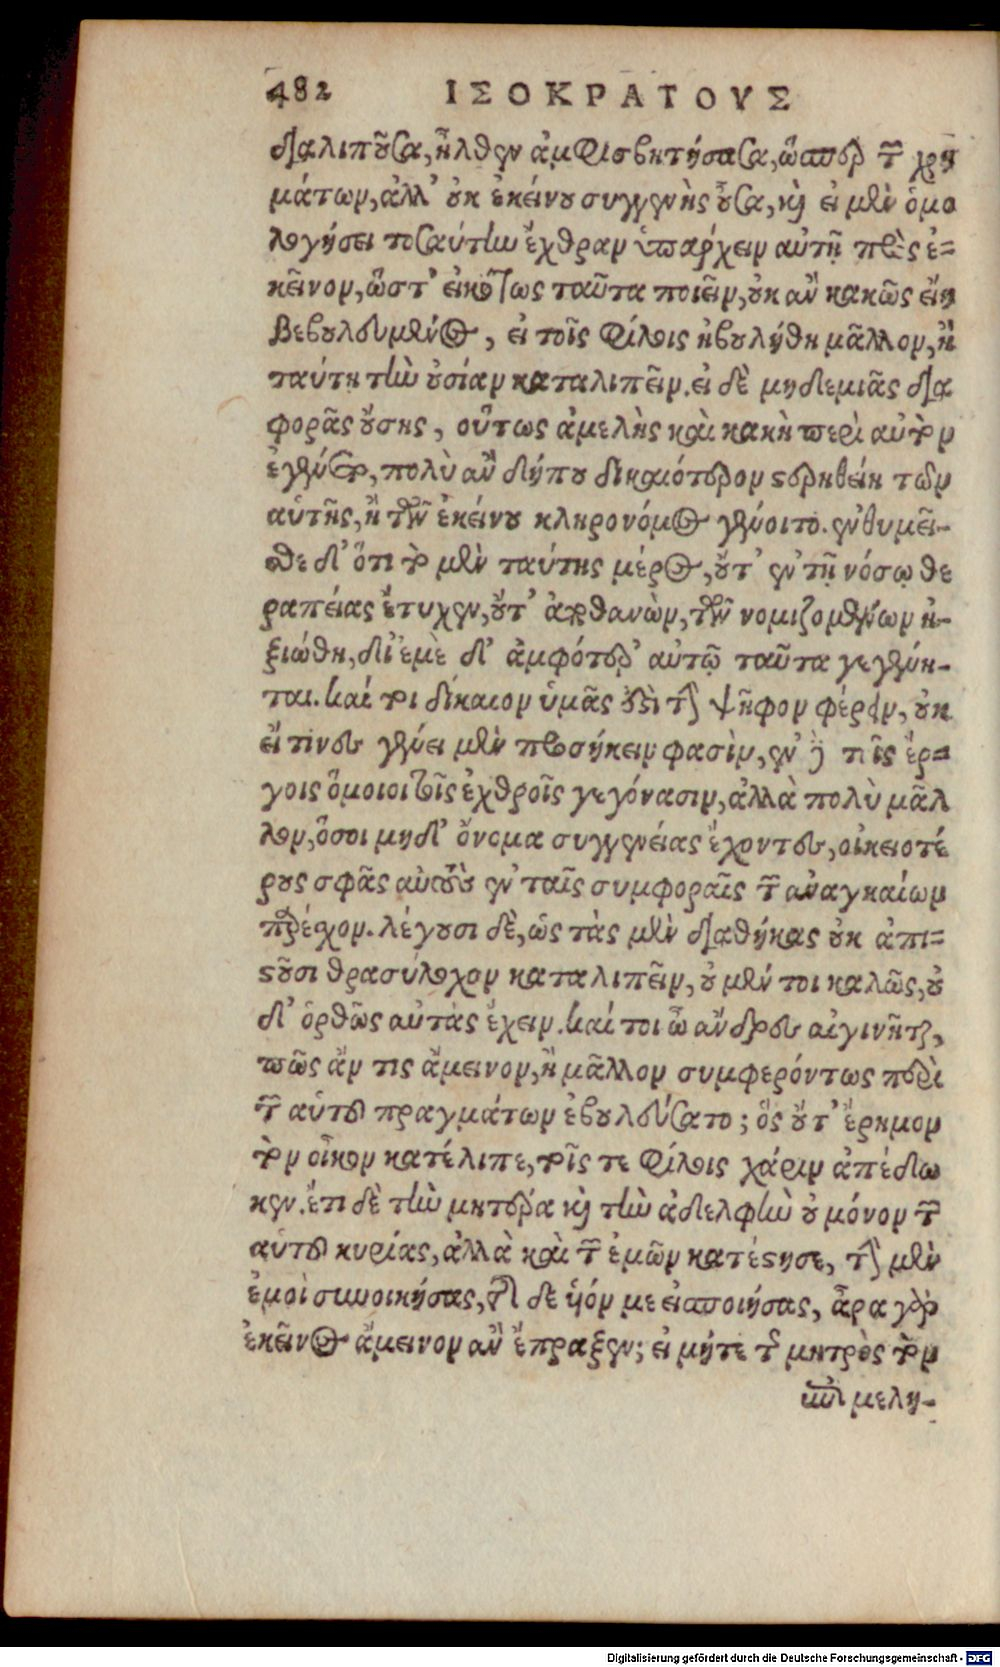 482 ΙΣΟΚΡΑΤΟΥΣ
διαλιποῦσα, ἦλθεν ἀμφισβητήσασα, ὥσπερ τῶν χρη
μάτων, ἀλλ' οὐκ ἐκείνου συγγενὴς οὖσα, καὶ εἰ μὲν ὁμο
λογήσει τοσαύτην ἔχθραν ὑπάρχειν αὐτῇ πρὸς ἐ-
κεῖνον, ὥστ' εἰκότως ταῦτα ποιεῖν, οὐκ ἂν κακῶς εἴη
βεβουλευμένος, εἰ τοῖς φίλοις ἠβουλήθη μᾶλλον, ἢ
ταύτῃ τὴν οὐσίαν καταλιπεῖν. εἰ δὲ μηδεμιᾶς δια
φορᾶς οὔσης, οὕτως ἀμελὴς καὶ κακὴ περὶ αὐτὸν
ἐγένετο, πολὺ ἂν δήπου δικαιότερον στερηθείη τῶν
αὑτῆς, ἢ τῶν ἐκείνου κληρονόμος γένοιτο. ἐνθυμεῖ-
σθε δ' ὅτι τὸ μὲν ταύτης μέρος, οὔτ' ἐν τῇ νόσῳ θε
ραπείας ἔτυχεν, οὔτ' ἀποθανὼν, τῶν νομιζομένων ἠ-
ξιώθη, δι' ἐμὲ δ' ἀμφότερ' αὐτῷ ταῦτα γεγένη-
ται. καί τοι δίκαιον ὑμᾶς ἐστὶ τὴν ψῆφον φέρειν, οὐκ
εἴ τινες γένει μὲν προσήκειν φασὶν, ἐν δὲ τοῖς ἔρ-
γοις ὅμοιοι τοῖς ἐχθροῖς γεγόνασιν, ἀλλὰ πολὺ μᾶλ
λον, ὅσοι μηδ' ὄνομα συγγενείας ἔχοντες, οἰκειοτέ
ρους σφᾶς αὐτοὺς ἐν ταῖς συμφοραῖς τῶν ἀναγκαίων
παρέσχον. λέγουσι δὲ, ὡς τὰς μὲν διαθήκας οὐκ ἀπι-
στοῦσι θρασύλοχον καταλιπεῖν, οὐ μέν τοι καλῶς, οὐ
δ' ὀρθῶς αὐτὰς ἔχειν. καί τοι ὦ ἄνδρες αἰγινῆται,
πῶς ἄν τις ἄμεινον, ἢ μᾶλλον συμφερόντως περὶ
τῶν αὑτοῦ πραγμάτων ἐβουλεύσατο; ὃς οὔτ' ἔρημον
τὸν οἶκον κατέλιπε, τοῖς τε φίλοις χάριν ἀπέδω
κεν. ἔτι δὲ τὴν μητέρα καὶ τὴν ἀδελφὴν οὐ μόνον τῶν
αὑτοῦ κυρίας, ἀλλὰ καὶ τῶν ἐμῶν κατέστησε, τὴν μὲν
ἐμοὶ συνοικήσας, τῇ δὲ ὑιόν με εἰσποιήσας, ἆρα γὰρ
ἐκεῖνος ἄμεινον ἂν ἔπραξεν; εἰ μήτε τῆς μητρὸς τὸν
ἐπιμελη-
Digitalisierung gefördert durch die Deutsche Forschungsgemeinschaft - DFG